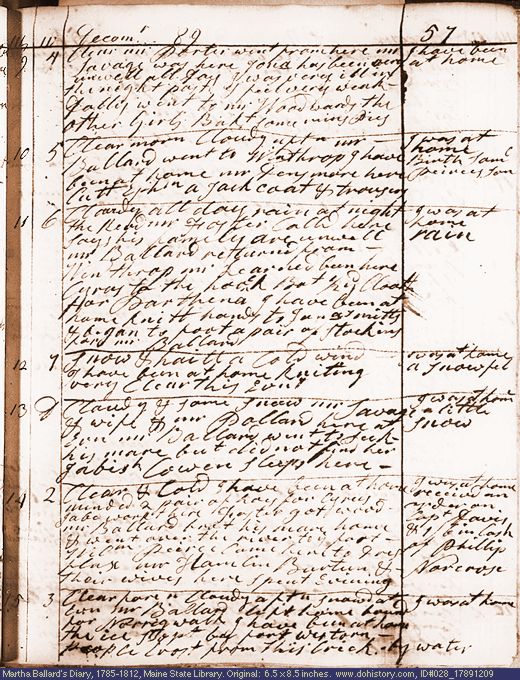 Decemr 89 57
9 4 Clear mr Porter went from here mr I have been
Savage was here Jona has been at home
unwell all day I was very ill in
the night past I feel very weak
Dolly went to mr Woodwards the
other Girls Bakt some mins Pies
10 5 Clear morn Cloudy aft n mr I was at
Ballard went to Winthrop I have home
been at home mr here Birth Saml
Cutt Ephm a Jack coat & trousers Peirces son
11 6 Cloudy all day rain at night I was at
the Revd mr Foster Calld here home
Says his family are unwell rain
mr Ballard returnd from
Winthrop mr Learned been here
Cyrus to the hook Bot yd Cloath
for Parthena I have been at
home knitt hands to Jonas mitts
& began to foot a pair of stockins
for mr Ballard
12 7 Snow & haill a Cold wind I was at home
I have been at home kniting a Snow fell
very Clear this Evng
13 D Cloudy & some Snow mr Savage I was at home
& wife & mr Pollard here at a little
Evn mr Ballard went to seek Snow
his mare but did not find her
Tabitha Cowen sleeps here
14 2 Clear & Cold I have been at home I was at home
mended a pair of for Cyrus received an
mr Foster got wood order on
mr Ballard bro't his mare home Capt Davis
& went over the river to
of Phillip
mr Hamlin Norcrose
their wives here spent Evening
15 3 Clear foren Cloudy aft n snowd at I was at home
Evn mr Ballard left home bound
for Norrigwalk I have been at home
the ice stopt by fort western
people Crost from this Crick by water
Martha Ballard's Diary, 1785-1812, Maine State Library. Original: 6.5 x 8.5 inches. www.dohistory.com, ID#028_17891209